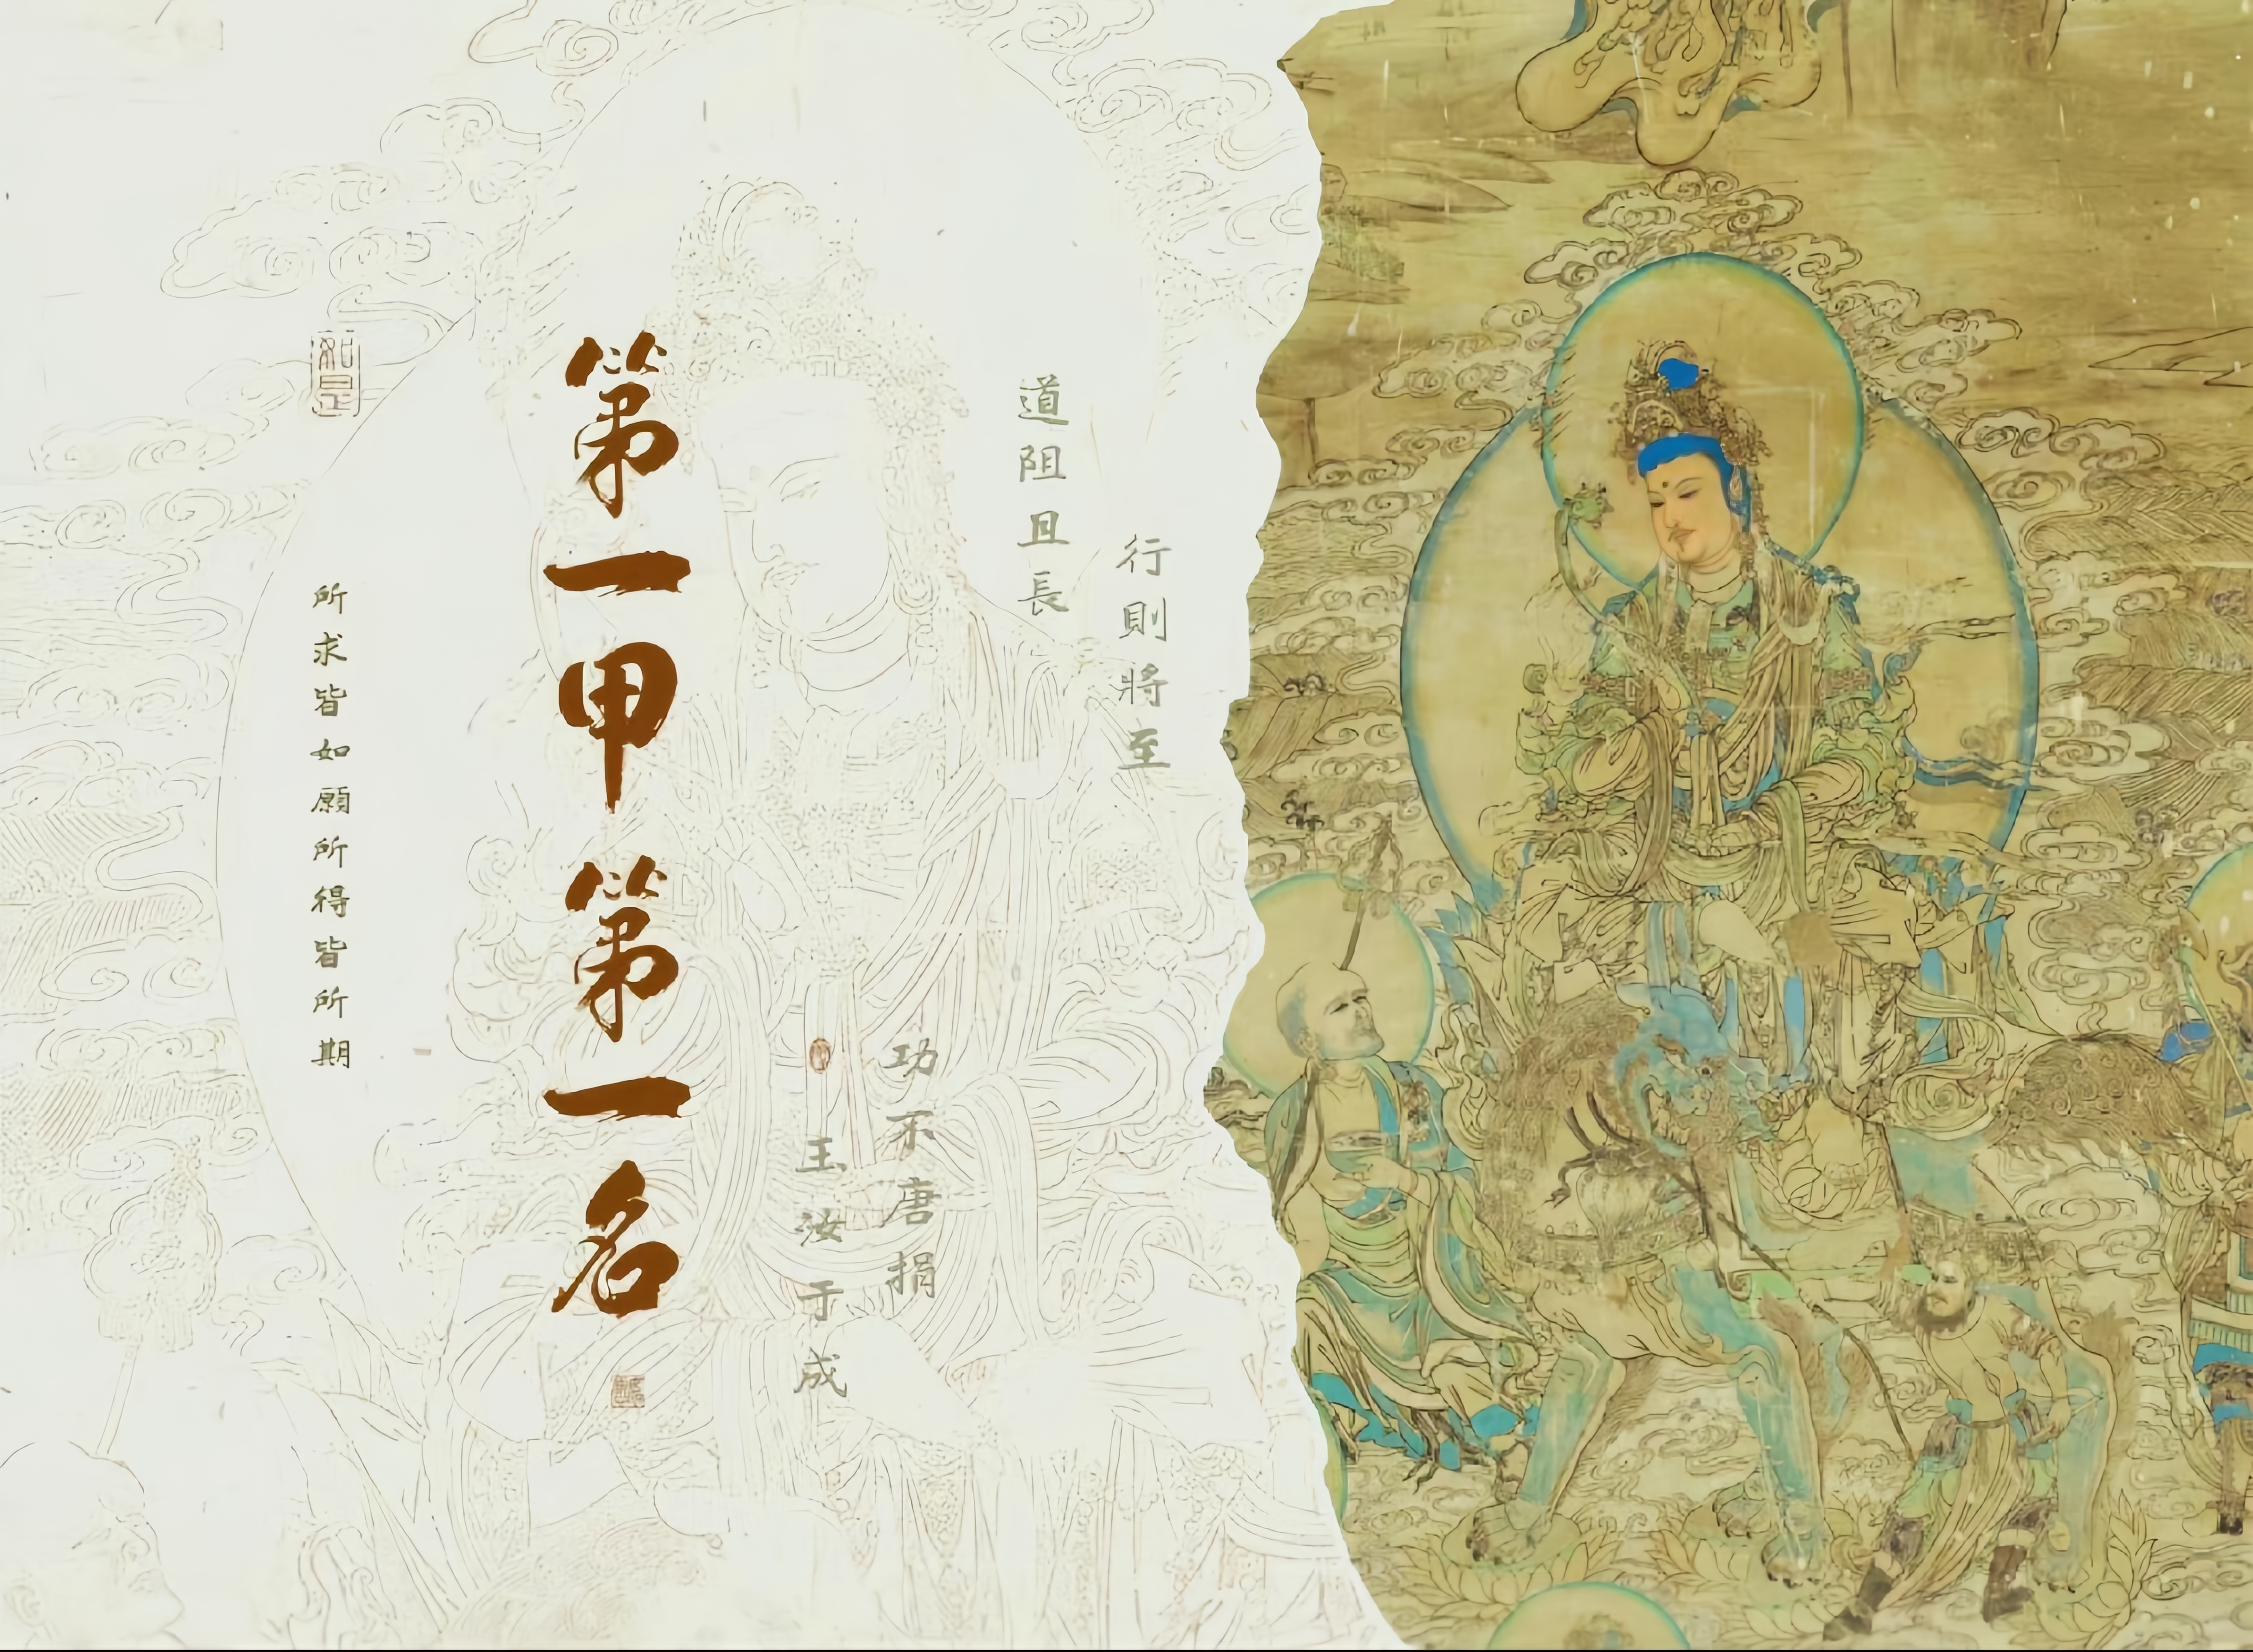 道阻且長
行則將至
功不唐捐
玉汝于成
第一甲第一名
如是
所求皆如願所得皆所期